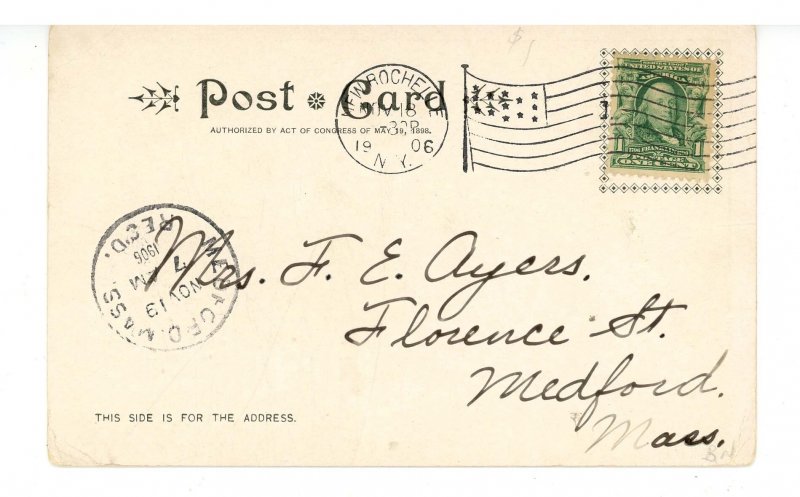 $1
Post Card
AUTHORIZED BY ACT OF CONGRESS OF MAY 19, 1898.
NEW ROCHELLE
NOV 18
19 06
N.Y.
UNITED STATES OF AMERICA
POSTAGE
ONE CENT
MEDFORD, MASS.
NOV 19
7
1906
REC'D.
Mrs. F. E. Ayers,
Florence St.
Medford.
Mass.
THIS SIDE IS FOR THE ADDRESS.